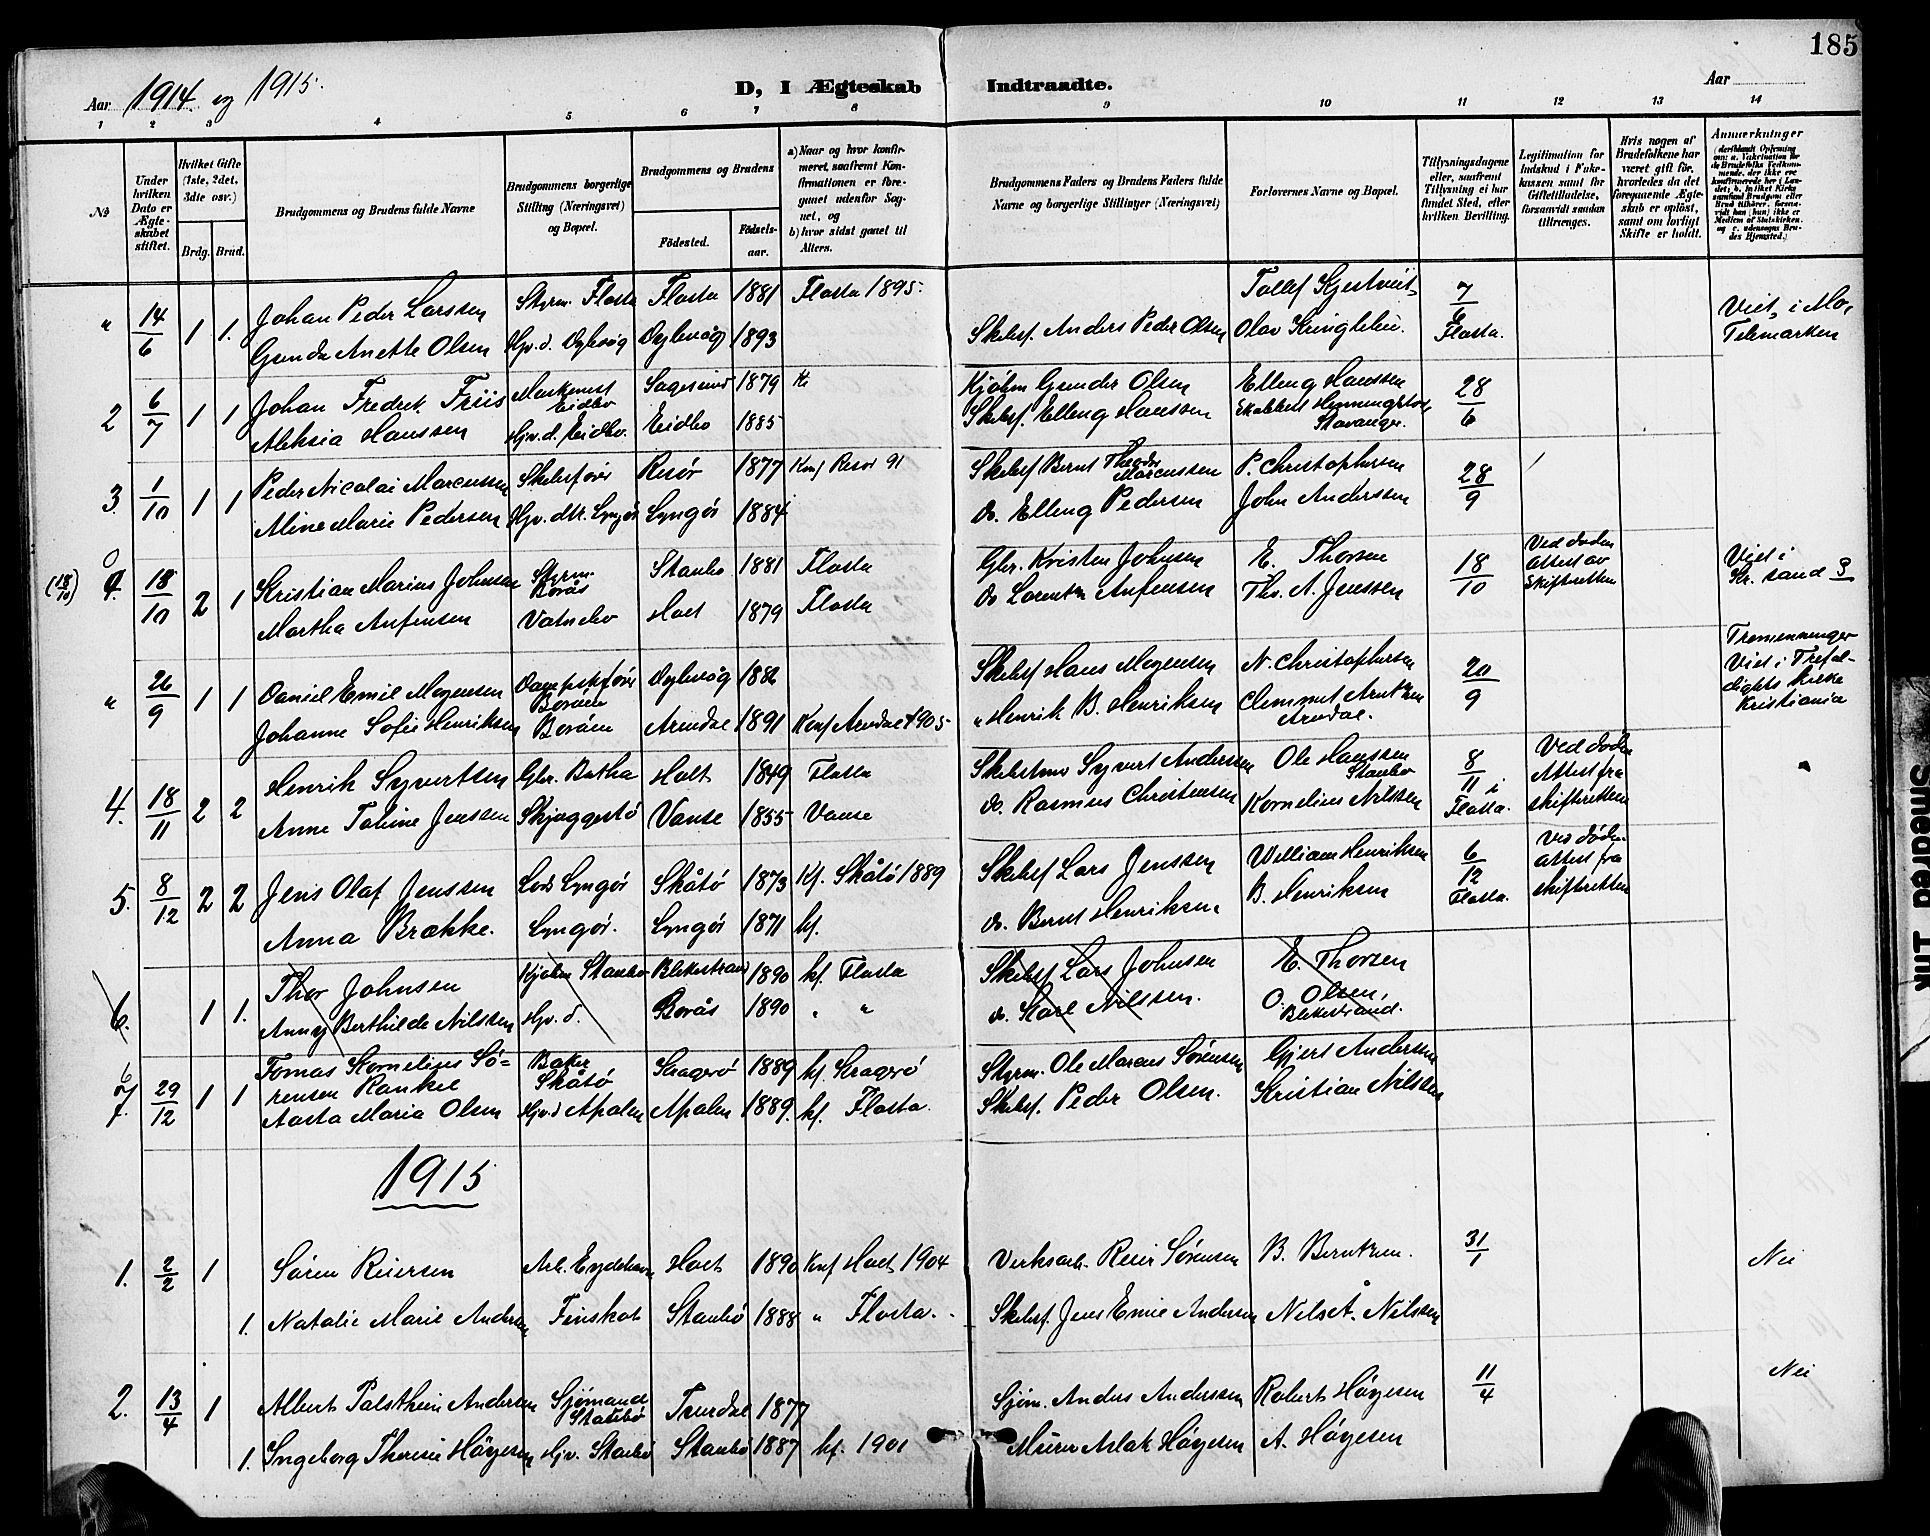 185
Aar 1914. og 1915.
D, I Ægteskab Indtraadte.
Aar
1 2 3 4 5 6 7 8 9 10 11 12 13 14
No
Under hvilken Dato er Ægteskabet stiftet.
Hvilket Gifte (1ste, 2det, 3die osv.)
Brdg. Brud.
Brudgommens og Brudens fulde Navne
Brudgommens borgerlige Stilling (Næringsvei) og Bopæl.
Brudgommens og Brudens
Fødested. Fødselsaar.
a) Naar og hvor konfirmeret, saafremt Konfirmationen er foregaaet udenfor Sognet, og
b) hvor sidst gaaet til Alters.
Brudgommens Faders og Brudens Faders fulde Navne og borgerlige Stillinger (Næringsvei)
Forlovernes Navne og Bopæl.
Tillysningsdagene eller, saafremt Tillysning ei har fundet Sted, efter hvilken Bevilling.
Legitimation for Indskud i Enkekassen samt for Giftetilladelse, forsaavidt saadan tiltrænges.
Hvis nogen af Brudefolkene har været gift før, hvorledes da det foregaaende Ægteskab er opløst, samt om lovligt Skifte er holdt.
Anmærkninger
" 14/6 1 1. Johan Peder Larssen Styrm. Flosta Flosta 1881 Flosta 1895. Tollef Kjestveit 7/6 Flosta. Viet, i Mo, Telemarken
Gunda Anette Olsen Hjv. d. Dybvåg Dybvåg 1893 Skibsf. Anders Peder Olsen Olav Kringlebu.
2 6/7 1 1 Johan Fredrik Friis Eidbo Sagesund 1879 Kjøbm Gunder Olsen Elling Hanssen 28/6
Aleksia Hanssen Hjv. d. Eidbo. Eidbo 1885 Skibsf. Elling Hanssen Stavanger.
3. 1/10 1 1 Peder Nicolai Marcussen Skibsfører Risør 1877 Konf Risør 91 Skibsf Bernt Theodor Marcussen P. Christophersen 28/9
Aline Marie Pedersen Hjv. dtr. Lyngør Lyngør 1884 do. Elling Pedersen John Anderssen
(18/10) 4. 18/10 2 1 Kristian Marius Johnsen Styrm. Borås Staubo 1881 Flosta Gbr. Kristen Johnsen E. Thorsen 18/10 Ved døden attest av Skifteretten Viet i Kr. sand S
Martha Anfensen Vatnebo Holt 1879 Flosta do Lorentz Anfensen Ths. A. Jenssen
" 26/9 1 1 Daniel Emil Mogensen Boråen Dybvåg 1882 Skibsf Hans Mogensen N. Christophersen 20/9 Tremenninger Viet i Trefoldigheds kirke Kristiania
Johanne Sofie Henriksen Boråen Arendal 1891 Konf Arendal 1905 " Henrik B. Henriksen Clemmet Arntzen Arendal.
4. 18/11 2 2 Henrik Syvertsen Gbr. Batha Holt 1849 Flosta Syvert Andersen Ole Hanssen Staubo 8/11 i Flosta. Ved døden Attest fra skifteretten
Anne Toline Jenssen Skjaggestø Vanse 1855 Vanse do. Rasmus Christensen Kornelius Nilssen
5. 8/12 2 2 Jens Olaf Jenssen Lods Lyngør Skåtø 1873 Kf. Skåtø 1889 Skibsf Lars Jenssen William Henriksen 6/12 Flosta. Ved døden attest fra skifteretten
Anna Brække. Lyngør. Lyngør 1871 kf. do. Bernt Henriksen. B. Henriksen
6. 1 1. Thor Johnsen Kjøbm Staubo Blekestrand 1890 kf. Flosta Skibsf Lars Johnsen E. Thorsen
Anny Berthilde Nilssen Hjv. d. Borås 1890 " " do. Karl Nilssen. O. Olsen, Blekestrand.
6 7. 29/12 1 1 Tomas Kornelius Sørensen Rankel Baker Skåtø Kragerø 1889 kf. Kragerø Styrm. Ole Marcus Sørensen Gjert Andersen
Aasta Maria Olsen Hjv.d Apalen Apalen 1889. kf. Flosta. Skibsf. Peder Olsen. Kristian Nilssen
1915
1. 2/2 1 Søren Reiersen Arb. Eydehavn Holt 1890 Konf Holt 1904 Verksarb. Reier Sørensen B. Berntzen. 31/1 Nei
1. Natalie Marie Andersen Finskat Staubø 1888 " Flosta. Skibsf. Jens Emil Andersen Nils A. Nilssen
2. 13/4 1 Albert Palsthein Andersen Sjømand Staubø 1877 Sjøm. Anders Anderssen Robert Høyesen 11/4 Nei
1. Ingeborg Therese Høyesen Hjv. Staubø Staubø 1887 kf. 1901 Murer Aslak Høyesen A. Høyesen